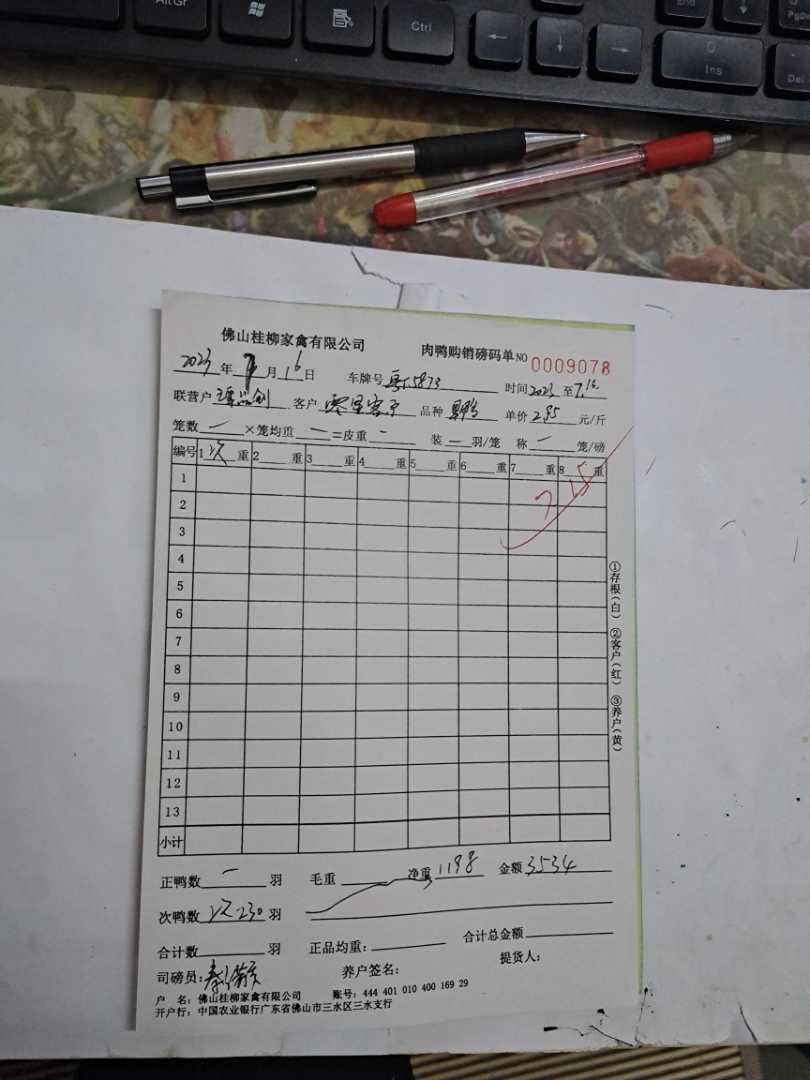 AltGr Ctrl End Pg
Ins Del
佛山桂柳家禽有限公司 肉鸭购销磅码单 NO 0009078
2023年7月16日 车牌号 时间2023至7.16
联营户 客户 零星客户 品种 单价2.95元/斤
笼数一×笼均重一=皮重一 装一羽/笼 称一笼/磅
编号 1次重 2重 3重 4重 5重 6重 7重 8重
7.15
1
2
3
4
5
6
7
8
9
10
11
12
13
小计
①存根(白) ②客户(红) ③养户(黄)
正鸭数一羽 毛重 净重1198 金额3534
次鸭数次230羽
合计数羽 正品均重: 合计总金额
司磅员: 养户签名: 提货人:
户 名: 佛山桂柳家禽有限公司 账号: 444 401 010 400 169 29
开户行: 中国农业银行广东省佛山市三水区三水支行